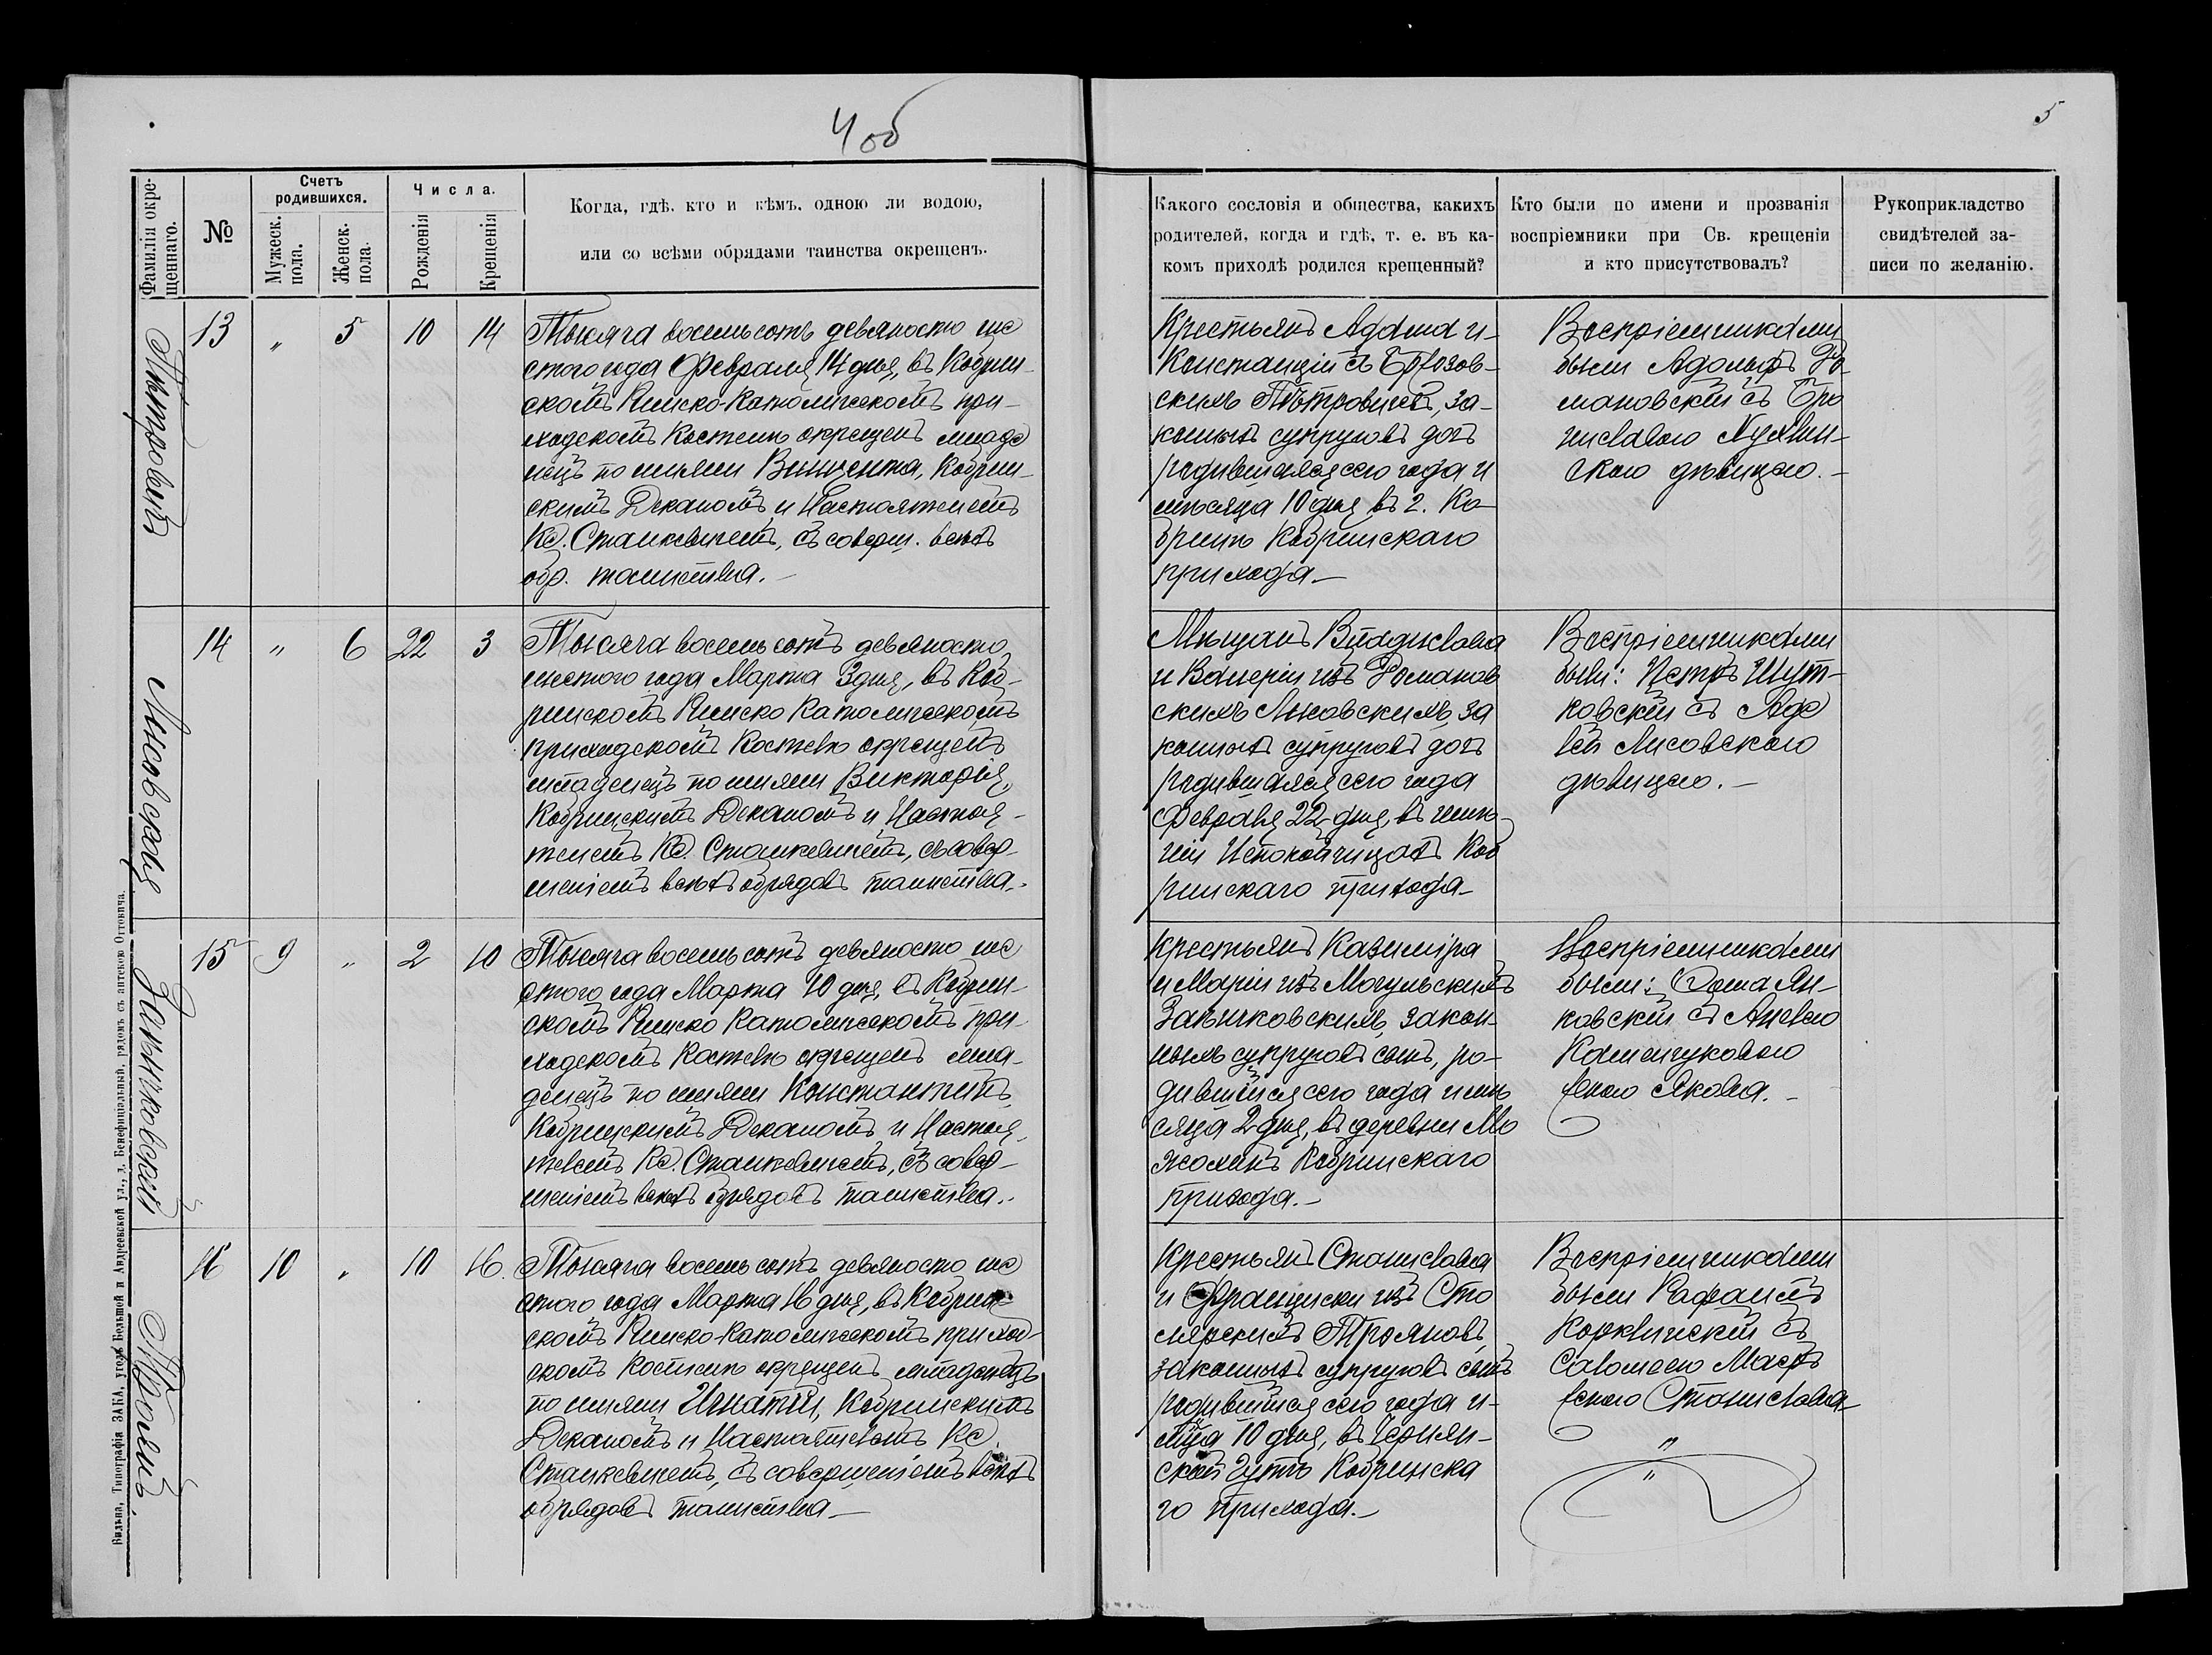 4 об
5
Фамилія окре-
щеннаго.
№
Счетъ
родившихся.
Мужеск.
пола.
Женск.
пола.
Числа.
Рожденія
Крещенія
Когда, гдѣ, кто и кѣмъ, одною ли водою,
или со всѣми обрядами таинства окрещенъ.
Какого сословія и общества, какихъ
родителей, когда и гдѣ, т. е. въ ка-
комъ приходѣ родился крещенный?
Кто были по имени и прозванія
воспріемники при Св. крещеніи
и кто присутствовалъ?
Рукоприкладство
свидѣтелей за-
писи по желанію.
Петровичъ
13 " 5 10 14
Тысяча восемьсотъ девяносто ше
стого года Февраля 14 дня, въ Кобрин-
скомъ Римско-Католическомъ при-
ходскомъ Костелѣ окрещенъ младе
нецъ по имени Винцента, Кобрин-
скимъ Деканомъ и Настоятелемъ
Кс. Станкевичемъ, съ соверш. всѣхъ
обр. таинства.
Крестьянъ Адама и
Констанціи съ Брозов-
скихъ Петровичей, за-
конныхъ супруговъ дочь
родившаяся сего года и
мѣсяца 10 дня въ г. Ко-
бринѣ Кобринскаго
прихода.
Воспріемниками
были Адольфъ Ро-
мановскій съ Бро
ниславою
скою дѣвицею.
Лисовская
14 " 6 22 3
Тысяча восемьсотъ девяносто
шестого года Марта 3 дня, въ Коб-
ринскомъ Римско Католическомъ
приходскомъ Костелѣ окрещенъ
младенецъ по имени Викторія,
Кобринскимъ Деканомъ и Настоя-
телемъ Кс. Станкевичемъ, съ совер-
шеніемъ всѣхъ обрядовъ таинства.
Мѣщанъ Владислава
и Валеріи изъ Романов
скихъ Лисовскихъ, за
конныхъ супруговъ дочь
родившаяся сего года
Февраля 22 дня, въ имѣ-
ніи Исполойчицахъ Коб
ринскаго прихода
Воспріемниками
были: Петръ Шут-
ковскій съ Аде
лей Лисовскою
дѣвицею.
Занычковскій
15 9 " 2 10
Тысяча восемьсотъ девяносто ше
стого года Марта 10 дня, въ Кобрин-
скомъ Римско Католическомъ при-
ходскомъ Костелѣ окрещенъ мла-
денецъ по имени Константинъ
Кобринскимъ Деканомъ и Настоя-
телемъ Кс. Станкевичемъ, съ совер-
шеніемъ всѣхъ обрядовъ таинства.
Крестьянъ Казиміра
и Маріи изъ Могульскихъ
Занычковскихъ, закон-
ныхъ супруговъ сынъ, ро-
дившійся сего года и мѣ
сяца 2 дня, въ деревни
Кобринскаго
прихода.
Воспріемниками
были: Фома Ян-
ковскій съ Анелею
Каменчуковою
женою Якова.
Троянъ
16 10 " 10 16
Тысяча восемьсотъ девяносто ше
стого года Марта 16 дня, въ Кобрин-
скомъ Римско-Католическомъ приход-
скомъ Костелѣ окрещенъ младенецъ
по имени Игнатій, Кобринскимъ
Деканомъ и Настоятелемъ Кс.
Станкевичемъ, съ совершеніемъ всѣхъ
обрядовъ таинства
Крестьянъ Станислава
и Франциски изъ Сто
лярскихъ Трояновъ,
законныхъ супруговъ сынъ
родившійся сего года и
мѣца 10 дня, въ Чернян-
ской Гутѣ Кобринска
го прихода.
Воспріемниками
были Рафаилъ
съ
Саломеею
женою Станислава
Вильна, Типографія ЗАКА, уголъ Большой и Андреевской ул., д. Бенефиціальный, рядомъ съ аптекою Оттовича.